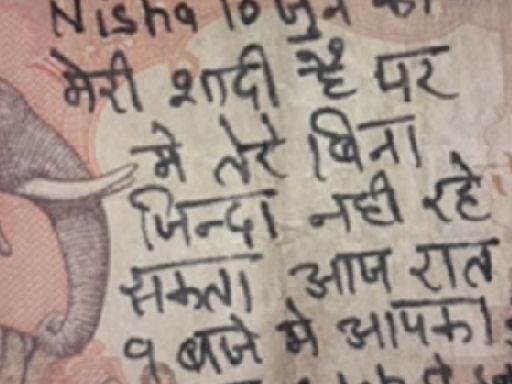 Nisha 10 जुन को
मेरी शादी है पर
मे तेरे बिना
जिन्दा नही रहे
सकता आज रात
9 बजे मे आपका